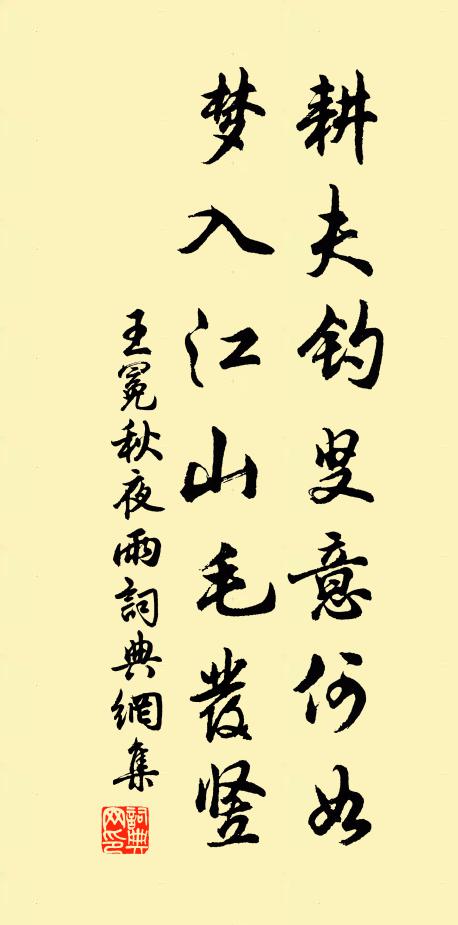 耕夫钓叟意何如
梦入江山毛發竖
王冕秋夜雨詞典網集
詞典网印